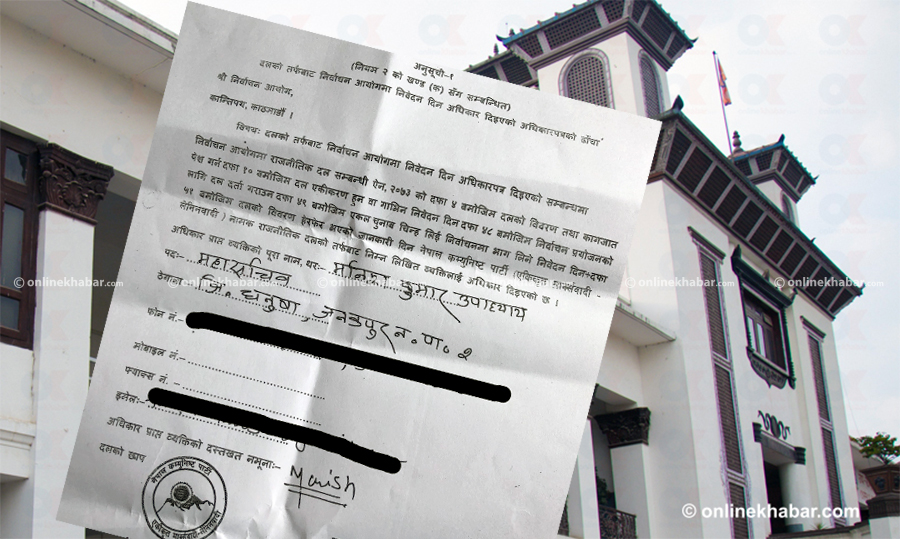 अनुसूची-१
(नियम २ को खण्ड (क) सँग सम्बन्धित)
दलको तर्फबाट निर्वाचन आयोगमा निवेदन दिन अधिकार दिइएको अधिकारपत्रको ढाँचा
श्री निर्वाचन आयोग,
कान्तिपथ, काठमाडौं ।
विषय: दलको तर्फबाट निर्वाचन आयोगमा निवेदन दिन अधिकारपत्र दिइएको सम्बन्धमा
निर्वाचन आयोगमा राजनीतिक दल सम्बन्धी ऐन, २०७३ को दफा ४ बमोजिम दलको विवरण तथा कागजात
पेश गर्न दफा १० बमोजिम दल एकीकरण हुन वा गाभिन निवेदन दिन दफा ४८ बमोजिम निर्वाचन प्रयोजनको
लागि दल दर्ता गराउन दफा ४९ बमोजिम एकल चुनाव चिन्ह लिई निर्वाचनमा भाग लिने निवेदन दिन÷दफा
५१ बमोजिम दलको विवरण हेरफेर भएको जानकारी दिन नेपाल कम्युनिष्ट पार्टी (एकिकृत मार्क्सवादी -
लेनिनवादी ) नामक राजनीतिक दलको तर्फबाट निम्न लिखित व्यक्तिलाई अधिकार दिइएको छ ।
अधिकार प्राप्त व्यक्तिको पूरा नाम, थर:- मनिष कुमार उपाध्याय
पद:- महासचिव
ठेगाना जि. धनुषा, जनकपुर न.पा. २
फोन नं.:-
मोबाइल नं.:-
फ्याक्स नं. -
इमेल:-
अधिकार प्राप्त व्यक्तिको दस्तखत नमूना:- Manish
दलको छाप
नेपाल कम्युनिष्ट पार्टी
एकीकृत मार्क्सवादी-लेनिनवादी
© onlinekhabar.com
© onlinekhabar.com
© onlinekhabar.com
© onlinekhabar.com
© onlinekhabar.com
© onlinekhabar.com